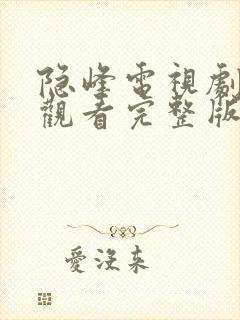 隐峰電視劇
觀看完整版
愛没来